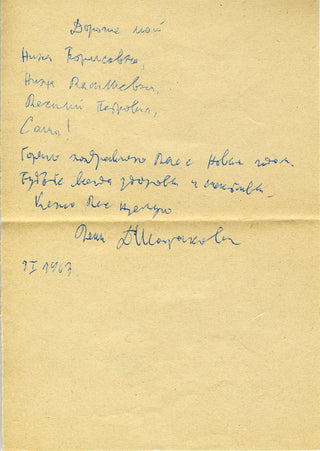 Дорогие мои
Нина Борисовна,
Нина Васильевна,
Василий Петрович,
Саша!
Горячо поздравляю Вас с Новым годом.
Будьте всегда здоровы и счастливы.
Крепко Вас целую
Ваш Д Шостакович
1 I 1967